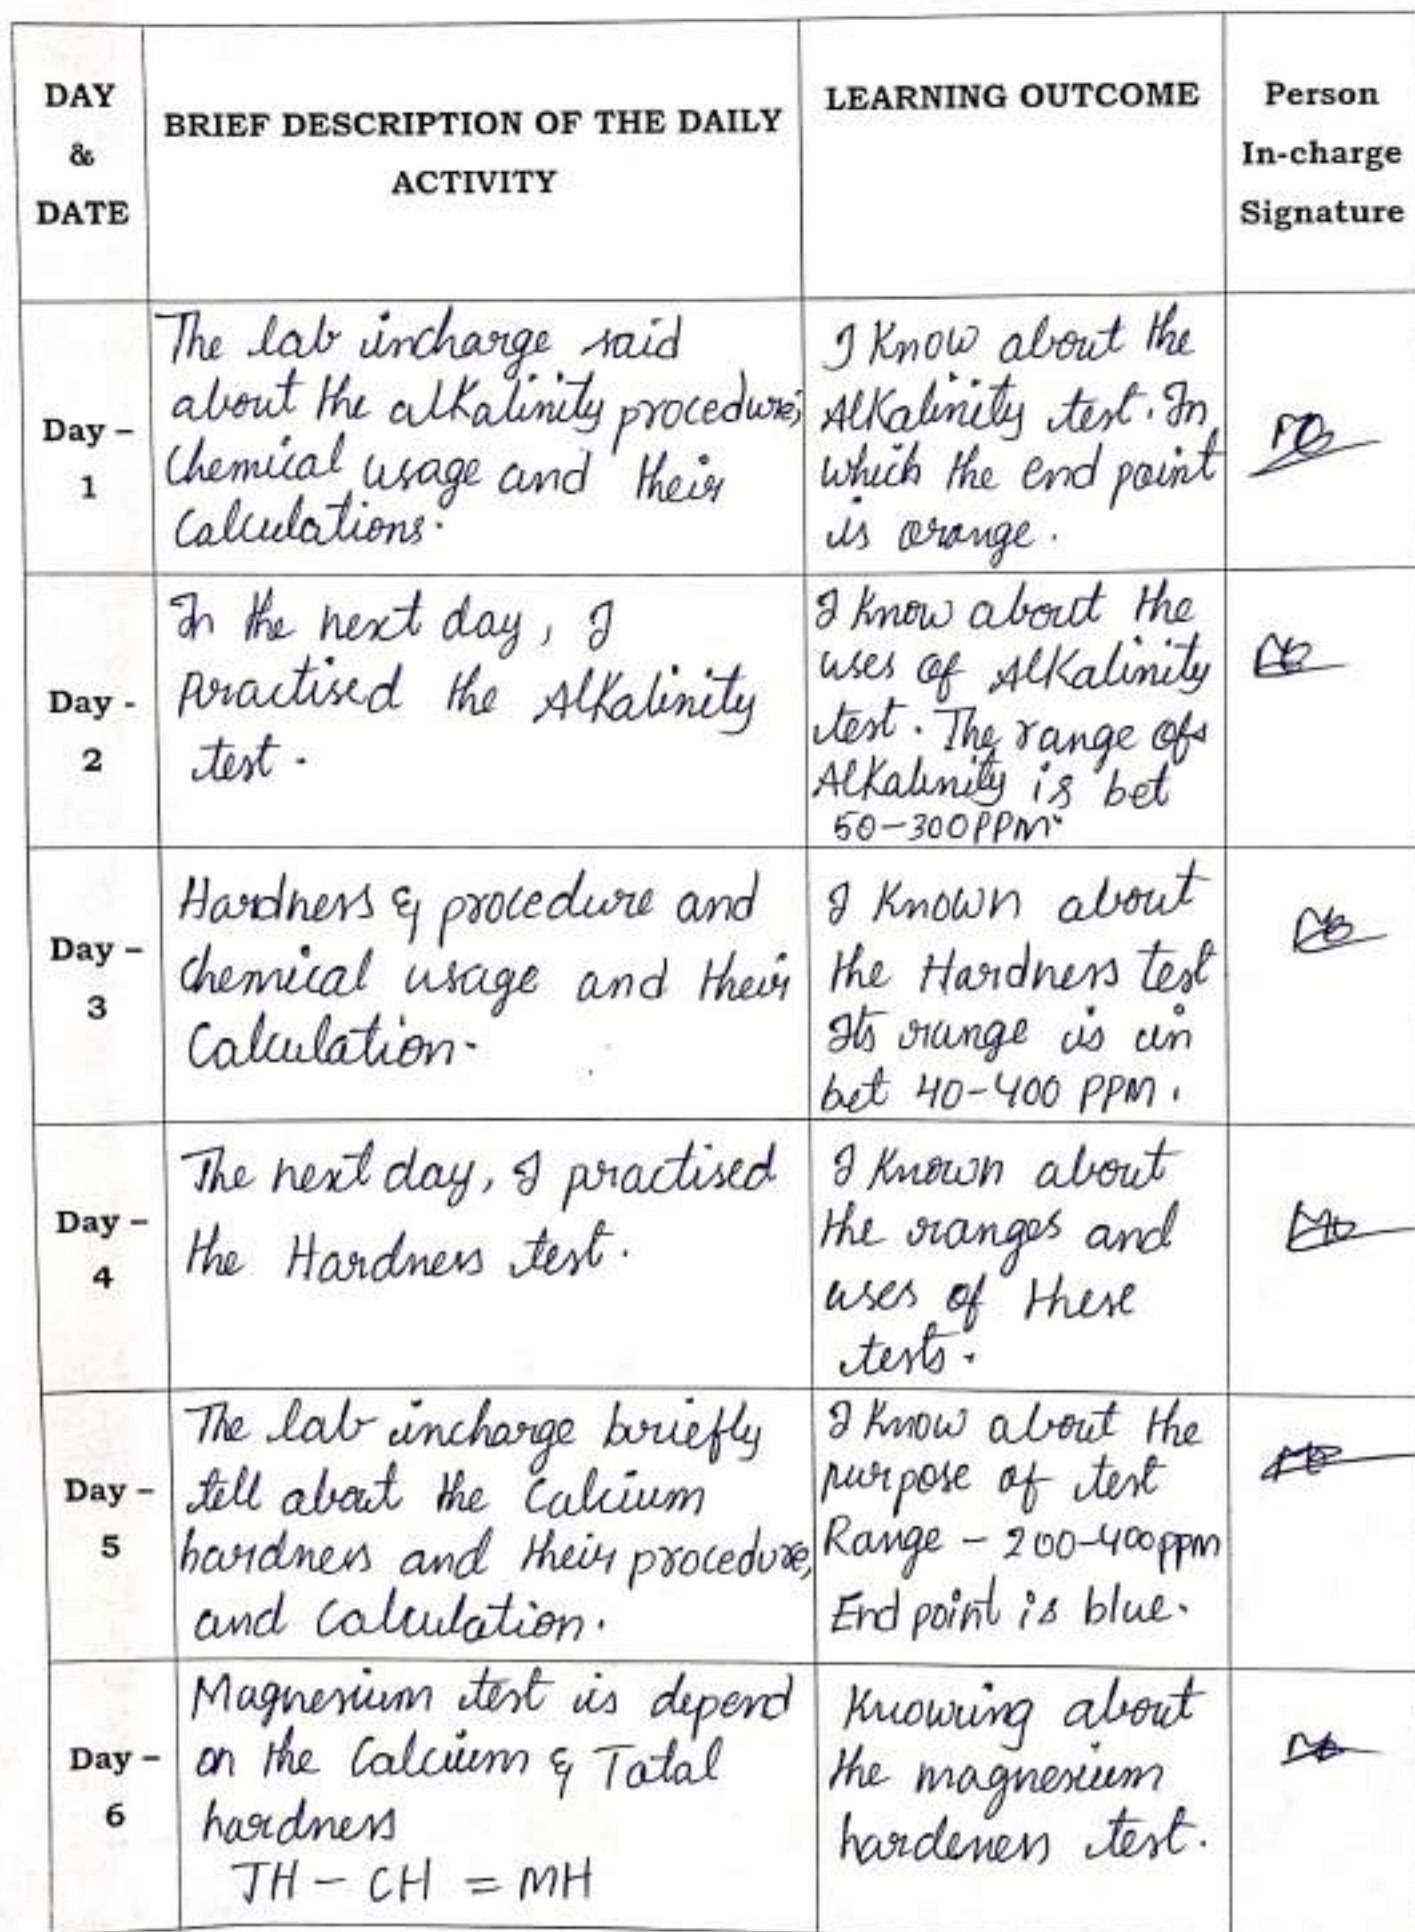 DAY
&
DATE
BRIEF DESCRIPTION OF THE DAILY
ACTIVITY
LEARNING OUTCOME
Person
In-charge
Signature
Day –
1
The lab incharge said
about the alkalinity procedure,
chemical usage and their
Calculations.
I Know about the
Alkalinity test. In
which the end point
is orange.
Day -
2
In the next day, I
practised the Alkalinity
test.
I know about the
uses of Alkalinity
test. The range of
Alkalinity is bet
50-300PPM.
Day –
3
Hardness & procedure and
chemical usage and their
Calculation.
I Known about
the Hardness test
Its range is in
bet 40-400 PPM.
Day –
4
The next day, I practised
the Hardness test.
I Known about
the ranges and
uses of these
tests.
Day –
5
The lab incharge briefly
tell about the Calcium
hardness and their procedure,
and Calculation.
I Know about the
purpose of test
Range - 200-400ppm
End point is blue.
Day –
6
Magnesium test is depend
on the Calcium & Total
hardness
TH - CH = MH
Knowing about
the magnesium
hardeness test.